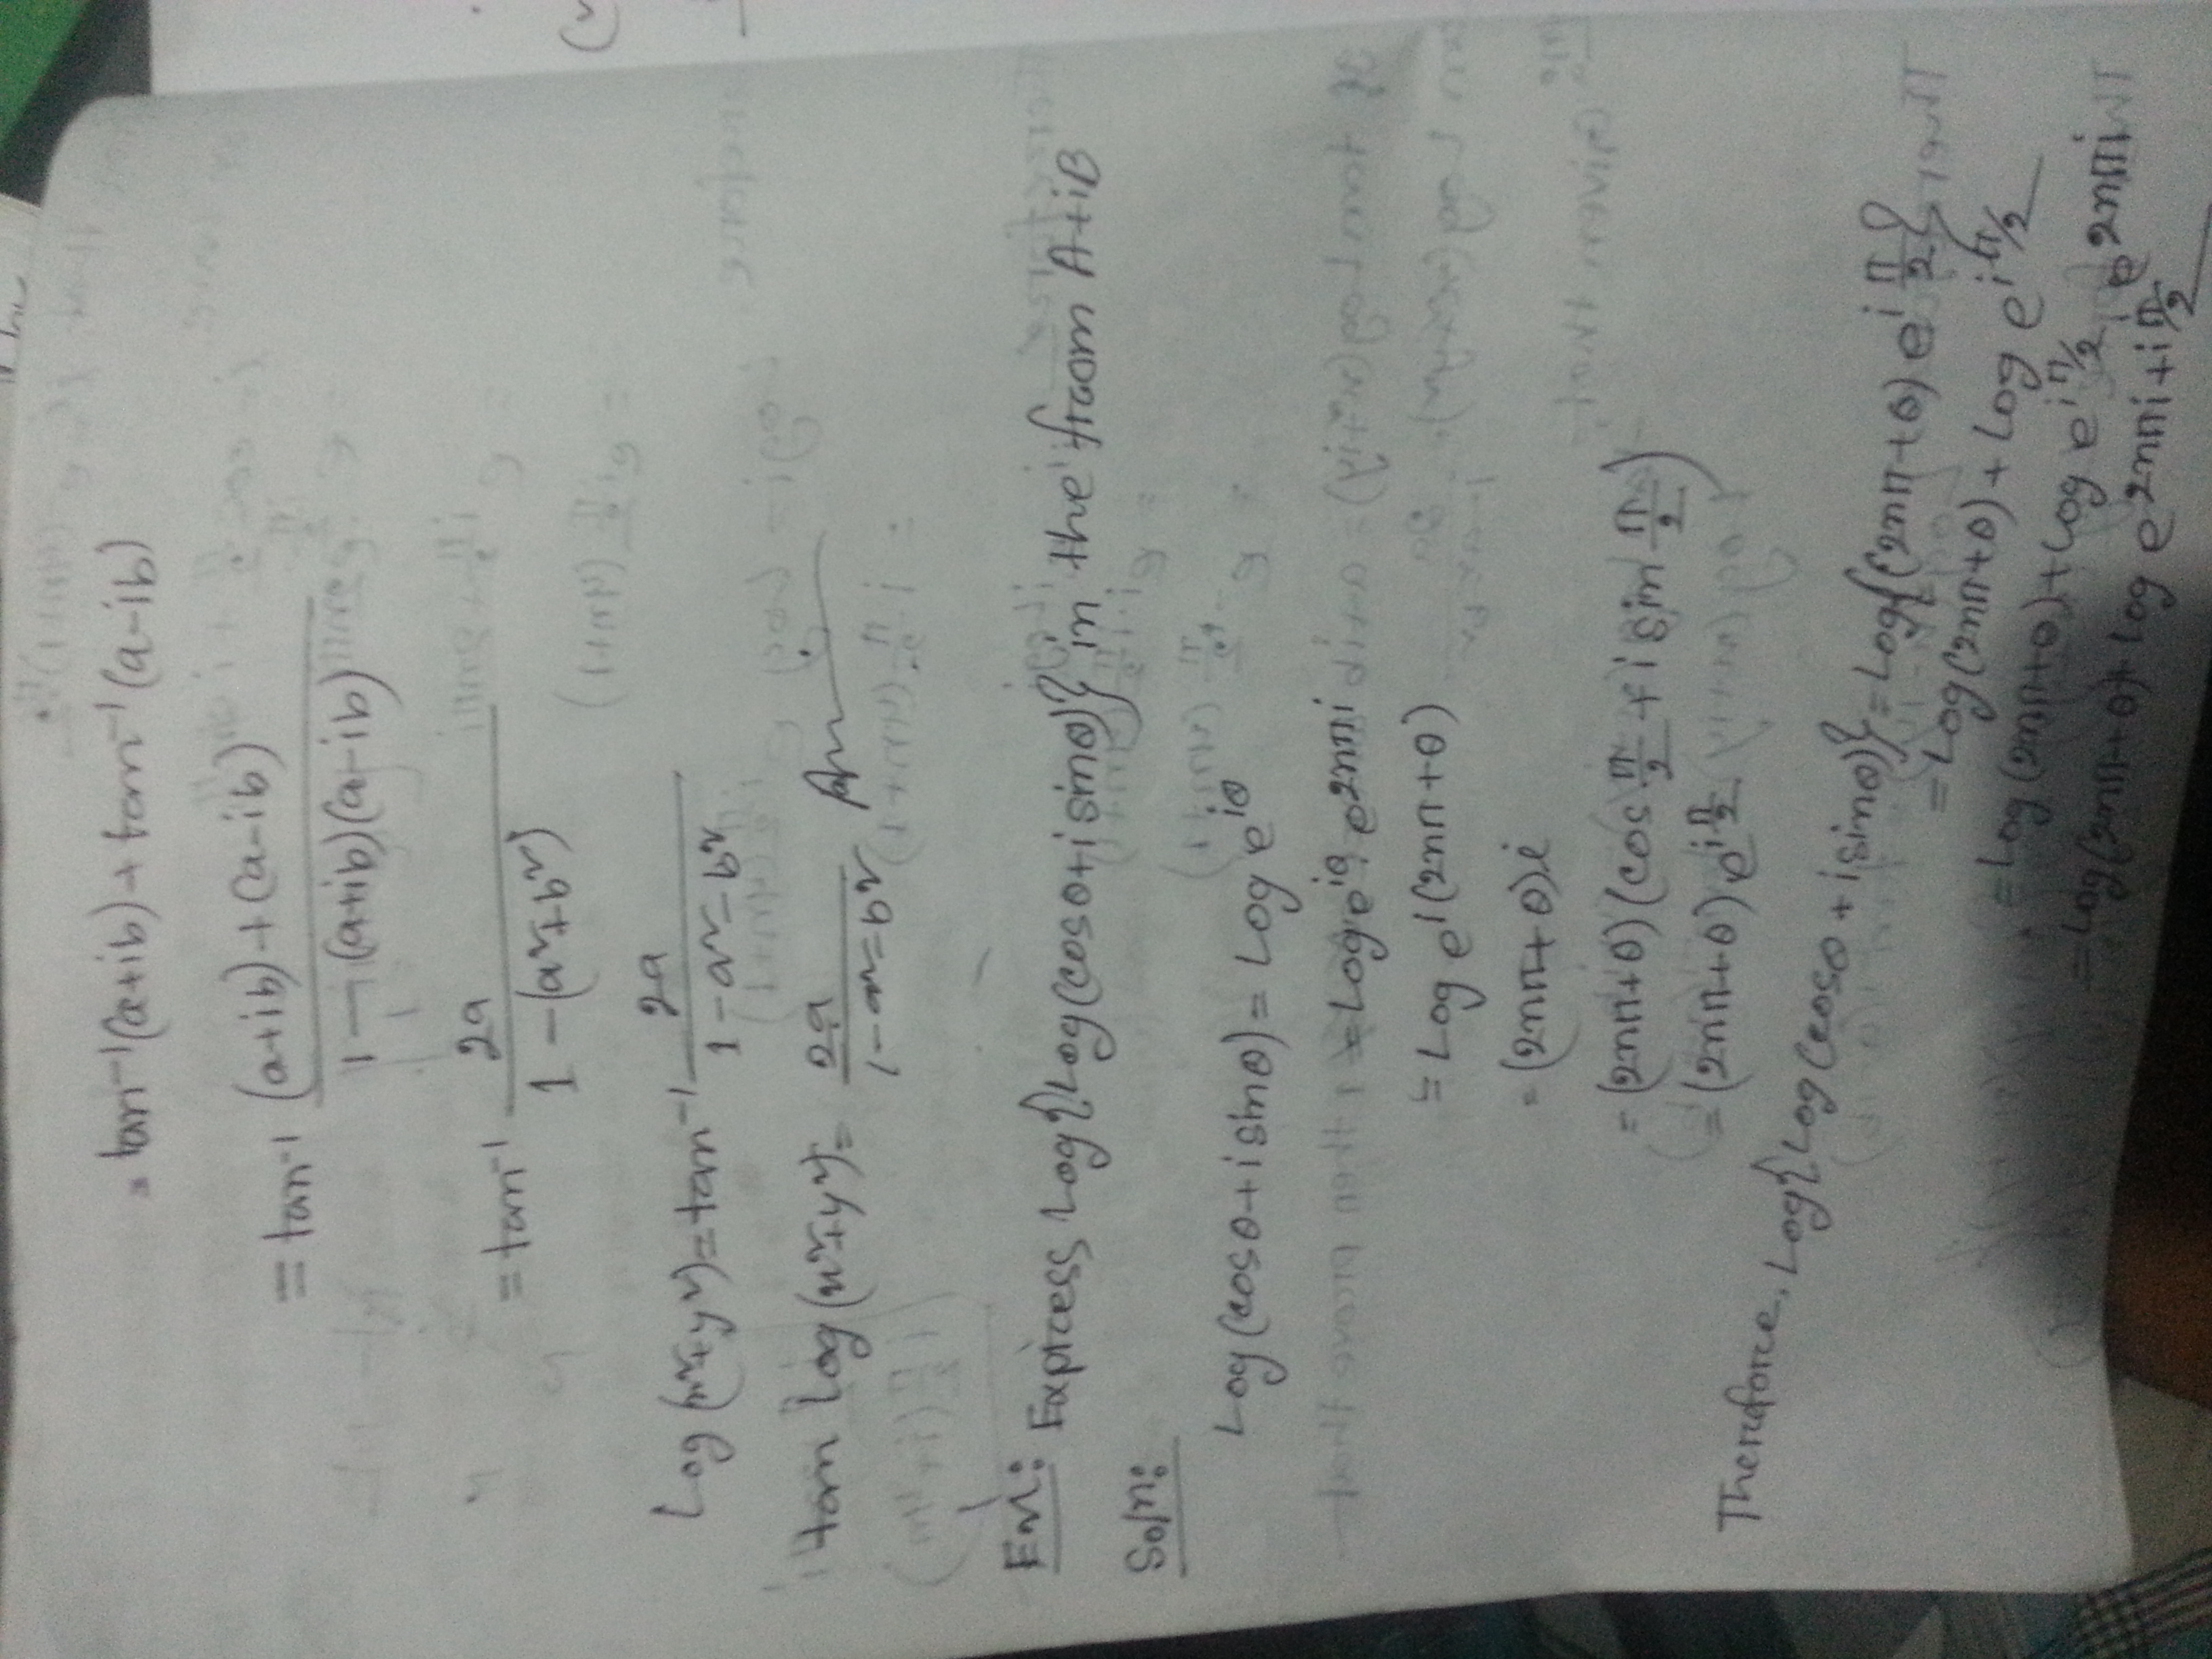 = tan⁻¹(a+ib) + tan⁻¹(a-ib)
= tan⁻¹ (a+ib)+(a-ib) / 1-(a+ib)(a-ib)
= tan⁻¹ 2a / 1-(a²+b²)
Log(x²+y²) = tan⁻¹ 2a / 1-a²-b²
tan log(x²+y²) = 2a / 1-a²-b²
Ex: Express Log{Log(cosθ+i sinθ)} in the froom A+iB
Soln:
Log(cosθ+i sinθ) = Log e^iθ
= Log e^iθ. e^2nπi
= Log e^i(2nπ+θ)
= (2nπ+θ)i
= (2nπ+θ)(cos π/2 + i sin π/2)
= (2nπ+θ) e^iπ/2
Therefore, Log{Log(cosθ+isinθ)} = Log{(2nπ+θ) e^i π/2}
= Log(2nπ+θ) + Log e^iπ/2
= Log(2nπ+θ) + Log e^iπ/2 . e^2nπi
= Log(2nπ+θ) + Log e^2nπi+iπ/2